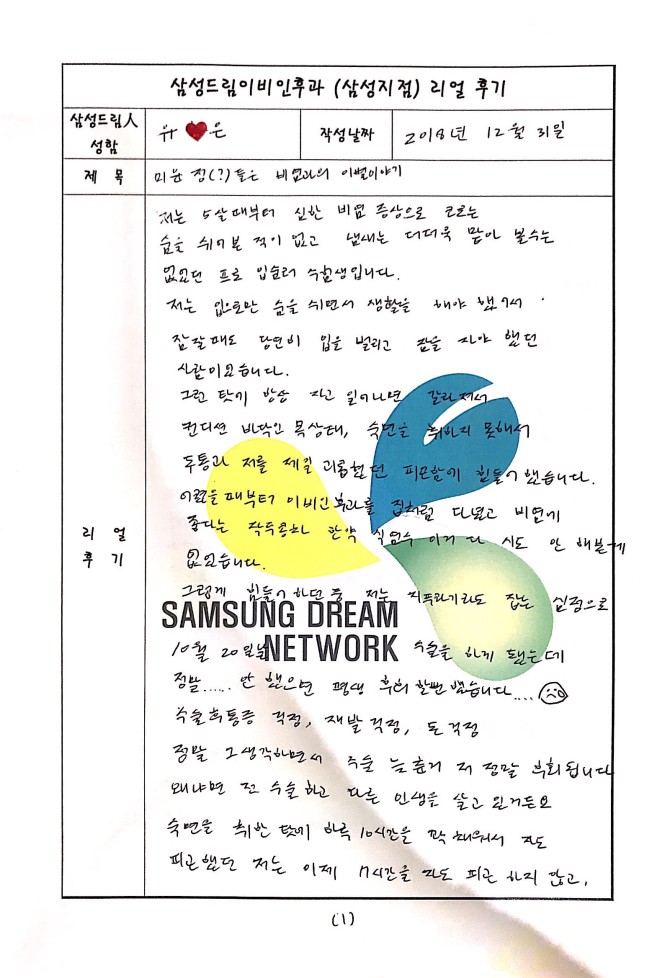 삼성드림이비인후과 (삼성지점) 리얼 후기
삼성드림人 성함
유 ♥ 은
작성날짜
2018년 12월 31일
제 목
미운 정(?)들은 비염과의 이별이야기
리 얼
후 기
저는 5살때부터 심한 비염 증상으로 코로는
숨을 쉬어본 적이 없고 냄새는 더더욱 맡아 볼수는
없었던 프로 입술러 수험생입니다.
저는 입으로만 숨을 쉬면서 생활을 해야 했어서
잠잘때도 당연히 입을 벌리고 잠을 자야 했던
사람이었습니다.
그런 탓에 항상 자고 일어나면 갈라져서
컨디션 바닥인 목상태, 숙면을 취하지 못해서
두통과 저를 제일 괴롭혔던 피로함에 힘들어 했습니다.
어렸을때부터 이비인후과를 집처럼 다녔고 비염에
좋다는 작두콩차 한약 식염수 이거 다 시도 안 해본게
없었습니다.
그렇게 힘들어 하던 중 저는 지푸라기라도 잡는 심정으로
SAMSUNG DREAM
NETWORK
10월 20일날 수술을 하게 됐는데
정말..... 안 했으면 평생 후회 할뻔 했습니다....
수술후통증 걱정, 재발걱정, 돈걱정
정말 그생각하면서 수술 늦춘거 저 정말 후회됩니다
왜냐면 전 수술하고 다른 인생을 살고 있거든요
숙면을 취한 탓에 하루 10시간을 꽉 채워서 자도
피곤했던 저는 이제 7시간을 자도 피곤 하지 않고,
(1)